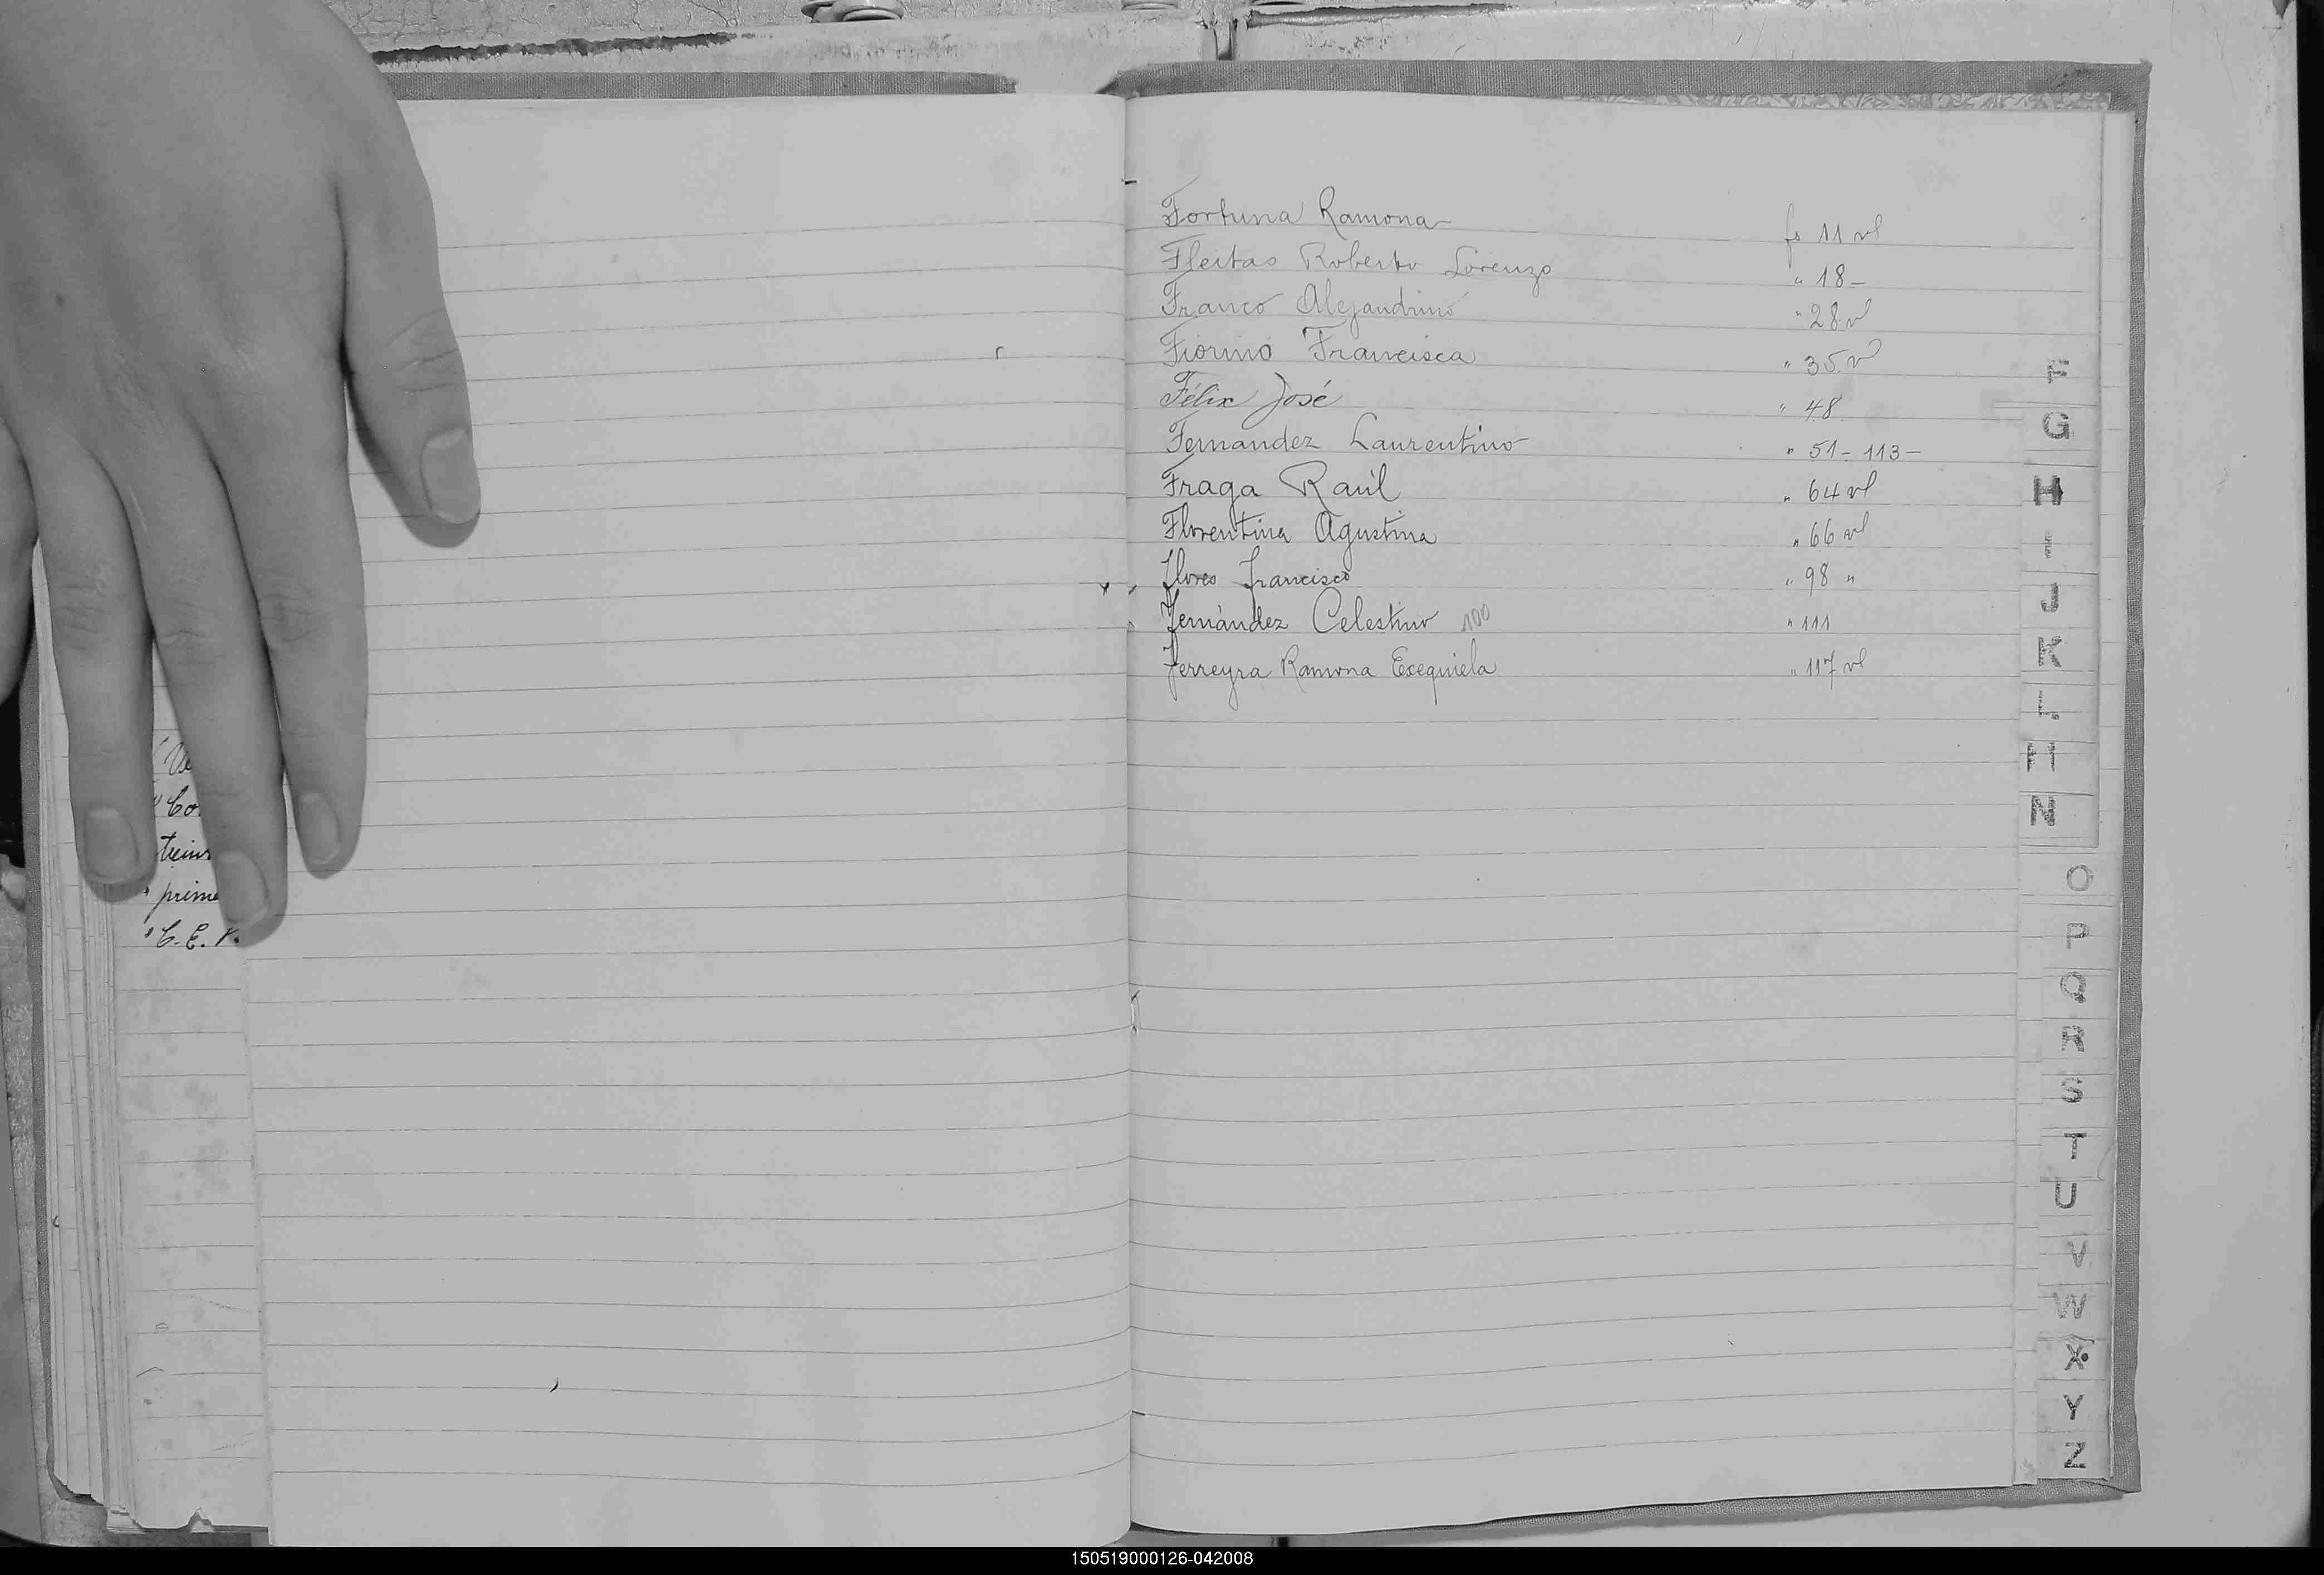 Co
prime
C. E.
Fortuna Ramona fs 11 vl
Fleitas Roberto Lorenzo " 18 -
Franco Alejandrino " 28 vl
Fiorino Francisca " 35 vl
Félix José " 48
Fernandez Laurentino " 51 - 113 -
Fraga Raúl " 64 vl
Florentina Agustina " 66 vl
Flores Francisco " 98 "
Fernández Celestino 100 " 111
Ferreyra Ramona Exequiela " 117 vl
F
G
H
I
J
K
L
M
N
O
P
Q
R
S
T
U
V
W
X
Y
Z
150519000126-042008